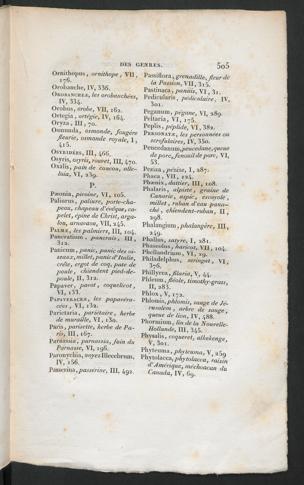 DES GENRES. 505
Ornithopus, ornithope, VII,
176.
Orobanche, IV, 336.
OROBANCHEÆ, les orobanchées,
IV, 334.
Orobus, orobe, VII, 162.
Ortegia, ortégie, IV, 164.
Oryza, III, 70.
Osmunda, osmonde, fougère
fleurie, osmonde royale, I,
415.
OSYRIDÉES, III, 466.
Osyris, osyris, rouvet, III, 470.
Oxalis, pain de coucou, alle-
luia, VI, 239.
P.
Paeonia, pivoine, VI, 105.
Paliurus, paliure, porte-cha-
peau, chapeau d'évêque, ca-
pelet, épine de Christ, arga-
lou, arnavaou, VII, 245.
PALMÆ, les palmiers, III, 104.
Pancratium, pancrais, III,
312.
Panicum, panic, panic des oi-
seaux, millet, panic d'Italie,
crête, ergot de coq, pate de
poule, chiendent pied-de-
poule, II, 312.
Papaver, pavot, coquelicot,
VI, 133.
PAPAVERACEÆ, les papavéra-
cées, VI, 132.
Parietaria, pariétaire, herbe
de muraille, VI, 130.
Paris, parisette, herbe de Pa-
ris, III, 167.
Parnassia, parnassie, foin du
Parnasse, VI, 296.
Paronychia, voyez Illecebrum,
IV, 156.
Passerina, passérine, III, 492.
Passiflora, grenadille, fleur de
la Passion, VII, 311.
Pastinaca, panais, VI, 31.
Pedicularis, pédiculaire, IV,
301.
Peganum, pégane, VI, 289.
Peltaria, VI, 175.
Peplis, péplide, VI, 382.
PERSONATÆ, les personnées ou
scrofulaires, IV, 350.
Peucedanum, peucedane, queue
de porc, fenouil de porc, VI,
53.
Peziza, pézize, I, 287.
Phaca, VII, 124.
Phœnix, dattier, III, 108.
Phalaris, alpiste, graine de
Canarie, aspic, escayole,
millet, ruban d'eau panaché,
chiendent-ruban, II,
298.
Phalangium, phalangère, III,
249.
Phallus, satyre, I, 281.
Phaseolus, haricot, VII, 104.
Phellandrium, VI, 29.
Philadelphus, seringat, VI,
376.
Phillyrea, filaria, V, 44.
Phleum, fléole, timothy-grass,
II, 283.
Phlox, V, 172.
Phlomis, phlomis, sauge de Jé-
rusalem, arbre de sauge,
queue de lion, IV, 488.
Phormium, lin de la Nouvelle-
Hollande, III, 345.
Physalis, coqueret, alkekenge,
V, 301.
Phyteuma, phyteuma, V, 259
Phytolacca, phytolacca, raisin
d'Amérique, méchoacan du
Canada, IV, 69.